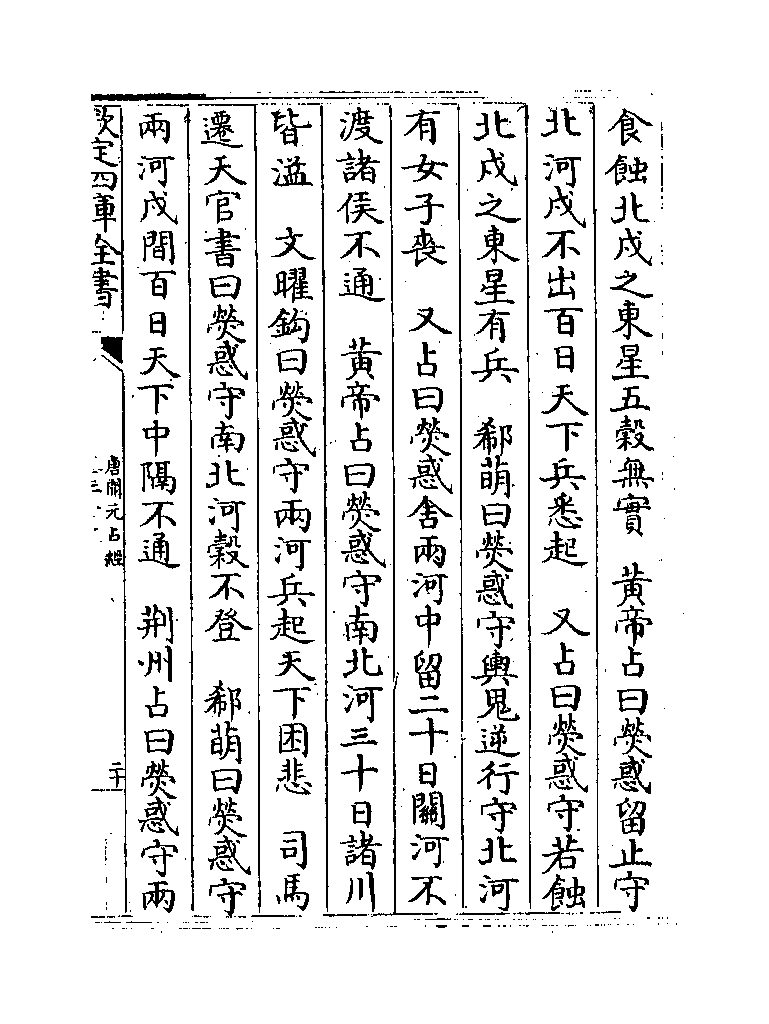 食蝕北戍之東星五穀無實　黃帝占曰熒惑留止守
北河戍不出百日天下兵悉起　又占曰熒惑守若蝕
北戍之東星有兵　郗萌曰熒惑守輿鬼逆行守北河
有女子喪　又占曰熒惑舍兩河中留二十日關河不
渡諸侯不通　黃帝占曰熒惑守南北河三十日諸川
皆溢　文曜鈎曰熒惑守兩河兵起天下困悲　司馬
遷天官書曰熒惑守南北河穀不登　郗萌曰熒惑守
兩河戍間百日天下中隔不通　荆州占曰熒惑守兩
欽定四庫全書
唐開元占經
二十